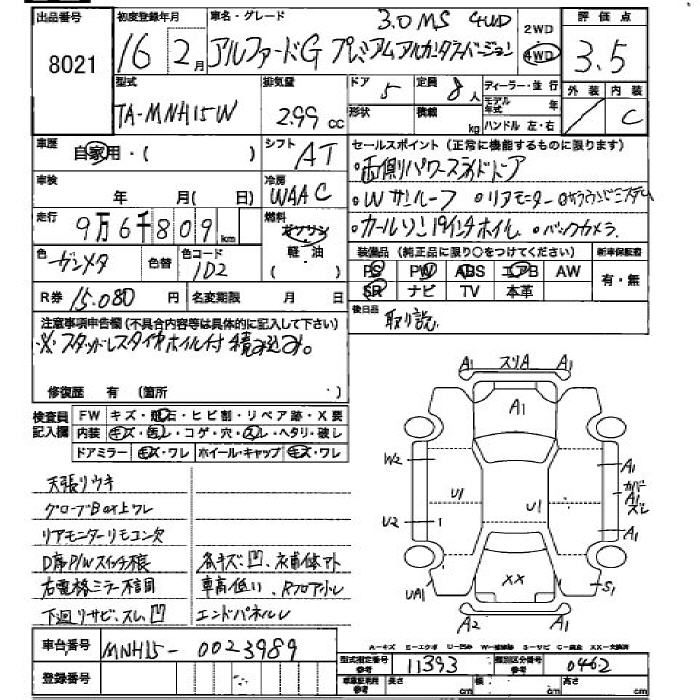 出品番号 初度登録年月 車名・グレード 3.0 MS 4WD 評価点
8021 16 2月 アルファードG プレミアムアルカンターラバージョン 2WD 4WD 3.5
型式 排気量 ドア 5 定員 8人 ディーラー・並行 外装 内装
TA-MNH15W 2.99 cc 形状 積載 kg モデル年式 年 ハンドル 左・右 / C
車歴 自家用・( ) シフト AT セールスポイント(正常に機能するものに限ります)
・両側パワースライドドア
車検 年 月 日 冷房 WAAC ・Wサンルーフ ・リアモニター ・サラウンドシステム
走行 9万6千809 km 燃料 ガソリン 軽・油 ・カールソン19インチホイル ・バックカメラ
色 ガンメタ 色替 色コード 1D2 装備品(純正品に限り○をつけてください) 新車保証書
PS PW ABS エアB AW 有・無
SR ナビ TV 本革
R券 15.080 円 名変期限 月 日 後日品 取り説
注意事項申告欄(不具合内容等は具体的に記入して下さい)
※スタッドレスタイヤホイル付積み込み。
修復歴 有(箇所 )
検査員記入欄 FW キズ・飛石・ヒビ割・リペア跡・X要
内装 キズ・汚レ・コゲ・穴・スレ・ヘタリ・破レ
ドアミラー キズ・ワレ ホイール・キャップ キズ・ワレ
天張リウキ
グローブBの上ワレ
リアモニターリモコン欠
D席P/Wスイッチ不良 各キズ凹
右電格ミラー不良 車高低い
下廻リサビ、スレ凹 エンドパネルレ
A1 スリA A1
A1
W2 A1
カバーA1ズレ
U1 U1
U2 1 A1
XX
UA1 S1
A2 A1
A-キズ E-エクボ U-凹ミ W-補修跡 S-サビ C-腐食 XX-交換済
車台番号 MNH15-0023989
型式指定番号参考 11393 類別区分番号参考 0462
登録番号 車庫証明用参考 長さ cm 幅 cm 高さ cm